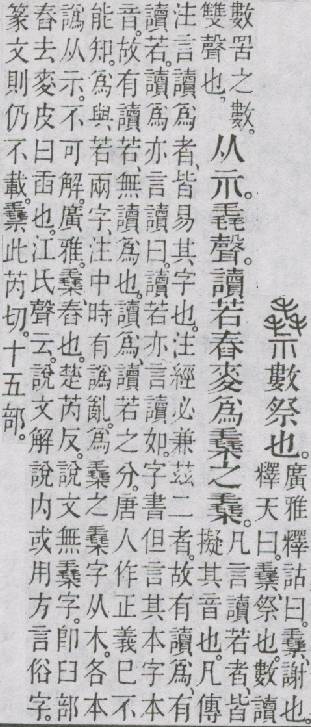 數祭也。
廣雅釋詁曰。謝也。
釋天曰。祭也。數讀
數罟之數。
雙聲也。
从示。毳聲。讀若舂麥爲之。
凡言讀若者。皆
擬其音也。凡傳
注言讀爲者。皆易其字也。注經必兼茲二者。故有讀爲。有
讀若。讀爲亦言讀曰。讀若亦言讀如。字書但言其本字本
音。故有讀若。無讀爲也。讀爲讀若之分。唐人作正義已不
能知。爲與若兩字。注中時有譌亂。爲之字从木。各本
譌从示。不可解。廣雅。舂也。楚芮反。說文無字。卽臼部
舂去麥皮曰臿也。江氏聲云。說文解說内或用方言俗字。
篆文則仍不載。此芮切。十五部。